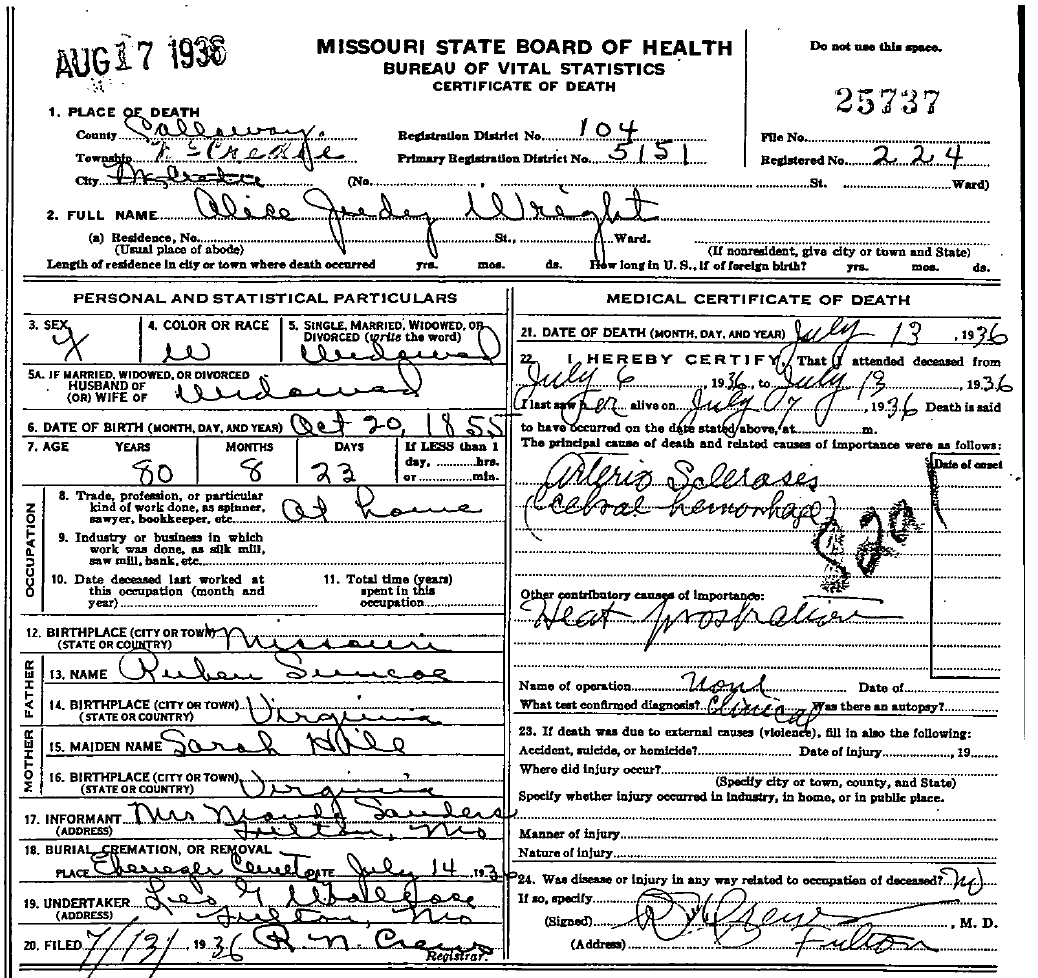 AUG 17 1936
MISSOURI STATE BOARD OF HEALTH
BUREAU OF VITAL STATISTICS
CERTIFICATE OF DEATH
Do not use this space.
25737
1. PLACE OF DEATH
County Callaway. Registration District No. 104 File No.
Township Primary Registration District No. 5151 Registered No. 224
City (No. St. Ward)
2. FULL NAME Alice Judy Wright
(a) Residence, No. St., Ward.
(Usual place of abode) (If nonresident, give city or town and State)
Length of residence in city or town where death occurred yrs. mos. ds. How long in U. S., if of foreign birth? yrs. mos. ds.
PERSONAL AND STATISTICAL PARTICULARS
3. SEX 4. COLOR OR RACE 5. SINGLE, MARRIED, WIDOWED, OR
DIVORCED (write the word)
F W Widowed
5A. IF MARRIED, WIDOWED, OR DIVORCED
HUSBAND OF
(OR) WIFE OF Widowed
6. DATE OF BIRTH (MONTH, DAY, AND YEAR) Oct 20, 1855
7. AGE YEARS MONTHS DAYS If LESS than 1
day, hrs.
or min.
80 8 23
OCCUPATION
8. Trade, profession, or particular
kind of work done, as spinner,
sawyer, bookkeeper, etc. At home
9. Industry or business in which
work was done, as silk mill,
saw mill, bank, etc.
10. Date deceased last worked at
this occupation (month and
year)
11. Total time (years)
spent in this
occupation
12. BIRTHPLACE (CITY OR TOWN) Missouri
(STATE OR COUNTRY)
FATHER
13. NAME Ruben Simcoe
14. BIRTHPLACE (CITY OR TOWN) Virginia
(STATE OR COUNTRY)
MOTHER
15. MAIDEN NAME Sarah
16. BIRTHPLACE (CITY OR TOWN) Virginia
(STATE OR COUNTRY)
17. INFORMANT Mrs Sanders
(ADDRESS) Fulton, Mo
18. BURIAL, CREMATION, OR REMOVAL
PLACE Ebenezer Cemet DATE July 14 1936
19. UNDERTAKER
(ADDRESS) Fulton, Mo
20. FILED 7/13/ 1936 R. N. Crews
Registrar.
MEDICAL CERTIFICATE OF DEATH
21. DATE OF DEATH (MONTH, DAY, AND YEAR) July 13, 1936
22. I HEREBY CERTIFY, That I attended deceased from
July 6, 1936, to July 13 1936
I last saw her alive on July 07, 1936 Death is said
to have occurred on the date stated above, at m.
The principal cause of death and related causes of importance were as follows:
Date of onset
Arterio Sclerosis
(Cebral hemorrhage)
Other contributory causes of importance:
Heat prostration
Name of operation None Date of
What test confirmed diagnosis? Clinical Was there an autopsy?
23. If death was due to external causes (violence), fill in also the following:
Accident, suicide, or homicide? Date of injury , 19
Where did injury occur?
(Specify city or town, county, and State)
Specify whether injury occurred in industry, in home, or in public place.
Manner of injury
Nature of injury
24. Was disease or injury in any way related to occupation of deceased? No
If so, specify
(Signed) Crews, M. D.
(Address) Fulton